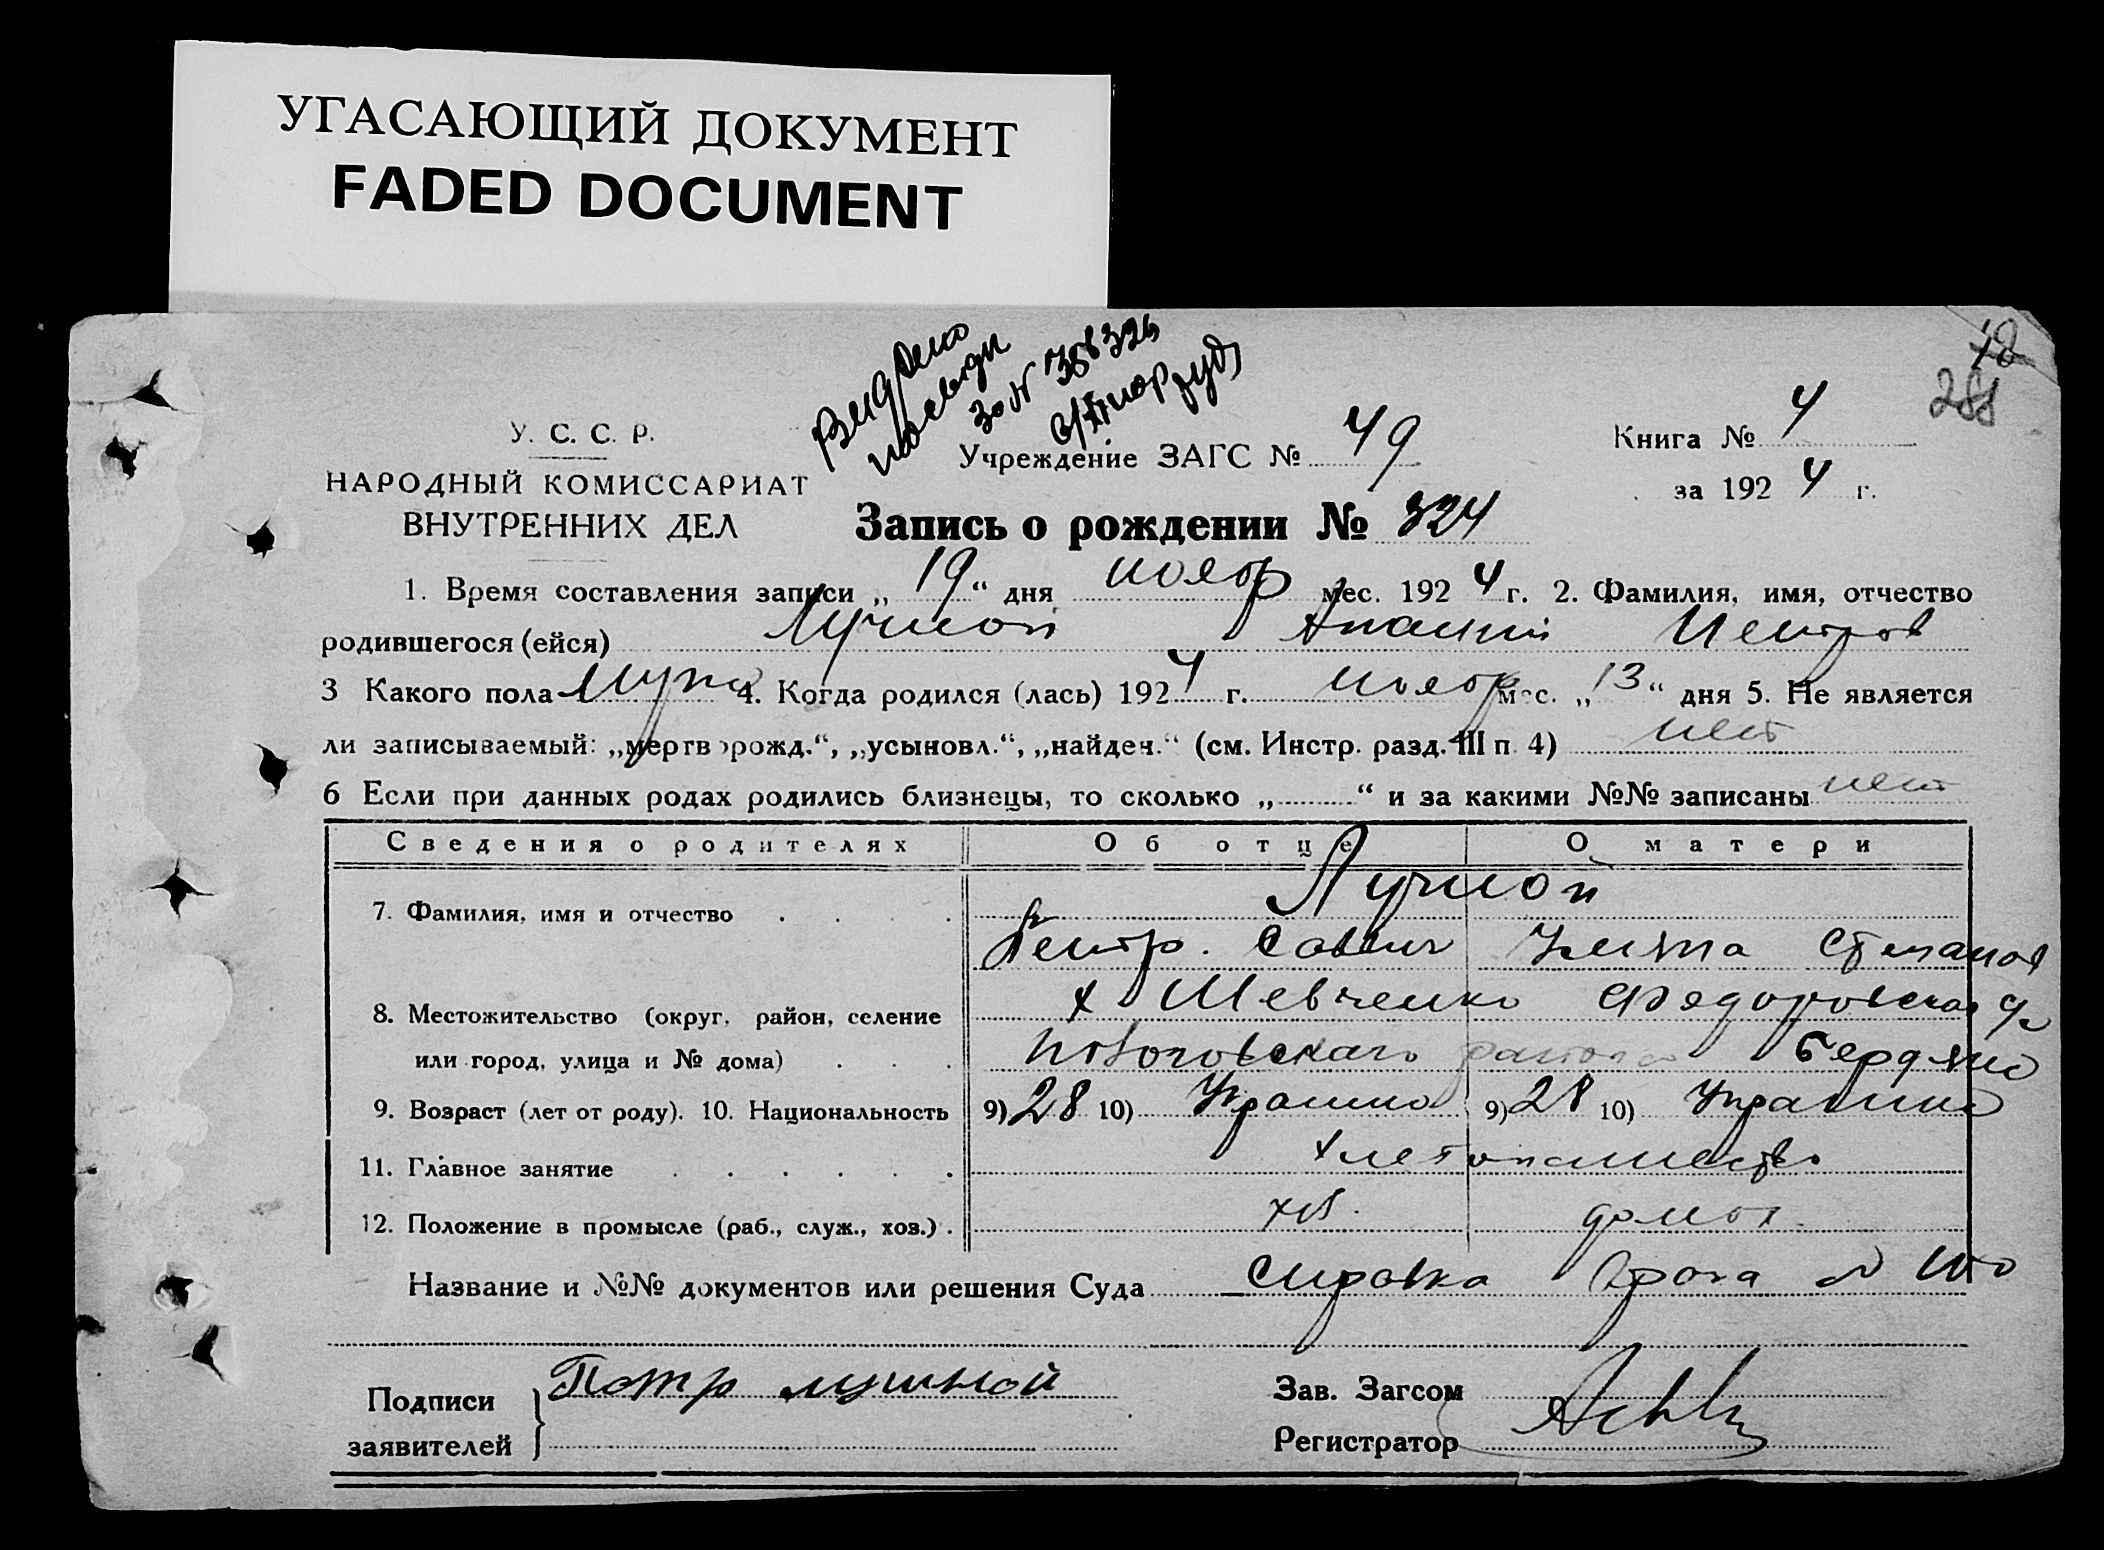 УГАСАЮЩИЙ ДОКУМЕНТ
FADED DOCUMENT
288
У. С. С. Р.
НАРОДНЫЙ КОМИССАРИАТ
ВНУТРЕННИХ ДЕЛ
Учреждение ЗАГС № 49
Книга № 4
за 1924 г.
Запись о рождении № 324
1. Время составления записи „19“ дня нояор мес. 1924 г. 2. Фамилия, имя, отчество
родившегося (ейся) Лучной Апаний Петров
3 Какого пола Муж 4. Когда родился (лась) 1924 г. нояор мес. „13“ дня 5. Не является
ли записываемый: „мертворожд.“, „усыновл.“, „найден.“ (см. Инстр. разд. III п. 4) нет
6 Если при данных родах родились близнецы, то сколько „..........“ и за какими №№ записаны нет
Сведения о родителях Об отце О матери
7. Фамилия, имя и отчество Лучной
Петр. Савич Степанов
х Шевченко Федоровская
8. Местожительство (округ, район, селение
или город, улица и № дома) района Бердян
9. Возраст (лет от роду). 10. Национальность 9) 28 10) Украин 9) 28 10) Украин
11. Главное занятие хлебопашество
12. Положение в промысле (раб., служ., хоз.) хоз. домох.
Название и №№ документов или решения Суда Справка врача
Подписи
заявителей
Петр лушной
Зав. Загсом
Регистратор